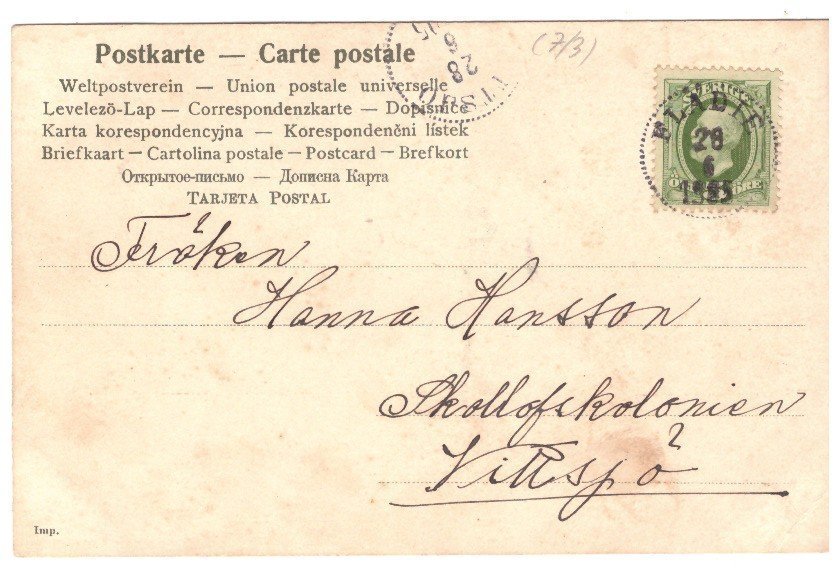 Postkarte — Carte postale
Weltpostverein — Union postale universelle
Levelező-Lap — Correspondenzkarte — Dopisnice
Karta korespondencyjna — Korespondenčni listek
Briefkaart — Cartolina postale — Postcard — Brefkort
Открытое-письмо — Дописна Карта
TARJETA POSTAL
28
(7/3)
SVERIGE
FLÄDIE
28
6
1905
Fröken
Hanna Hansson
Skollofskolonien
Vittsjö
Imp.